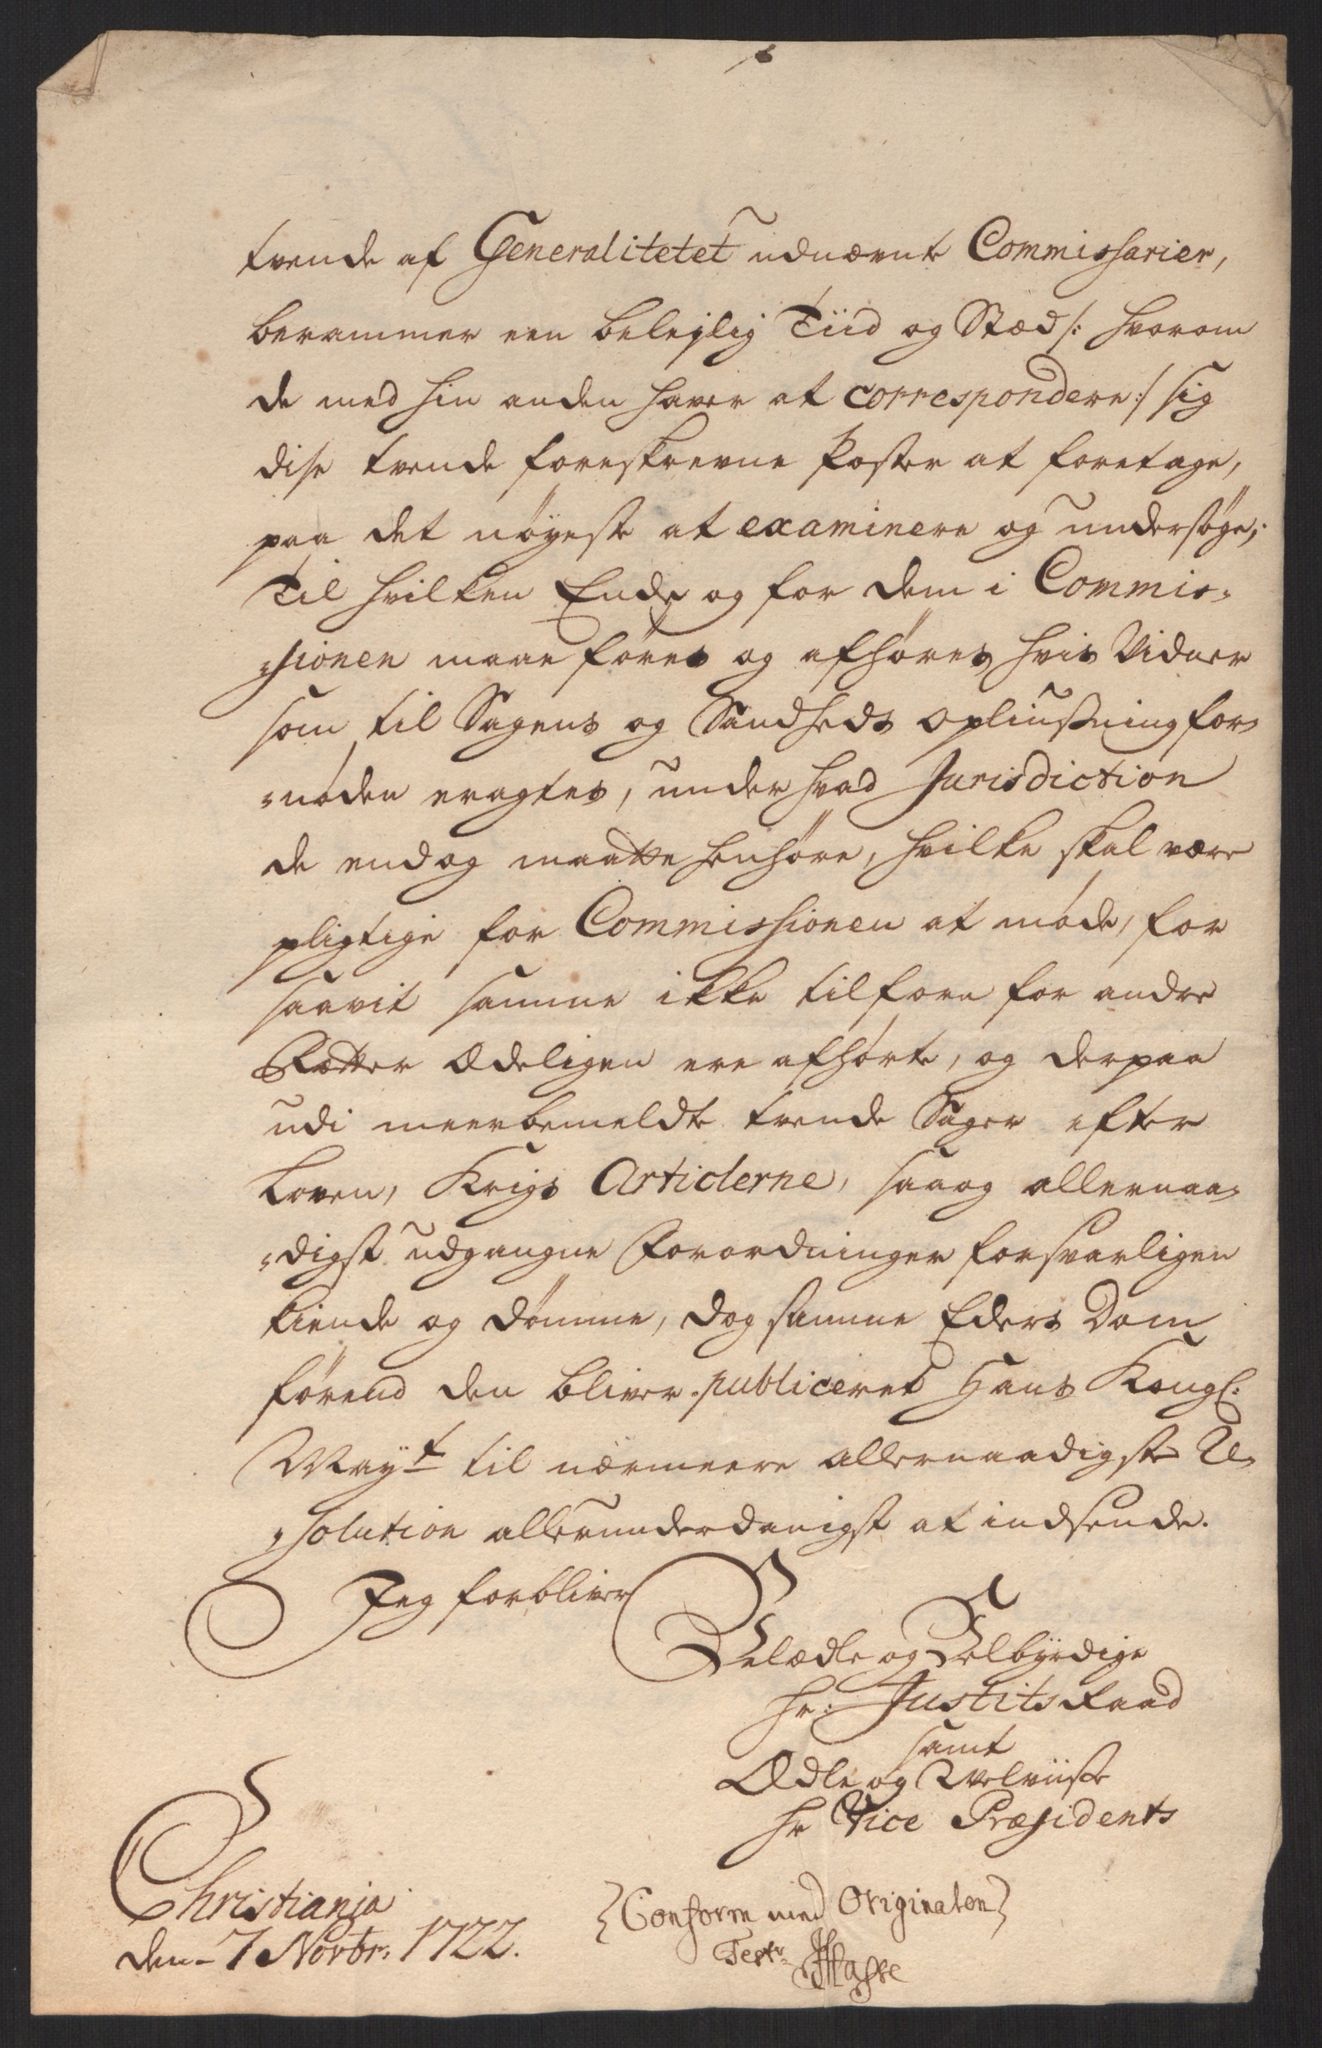 tvende af Generalitetet udnævnte Commissarier,
berammer een belejlig Tiid og Stæd /: hvorom
de med hin anden haver at correspondere :/ sig
disse tvende foreskrevne Poster at foretage,
paa det nøyeste at examinere og undersøge;
Til hvilken Ende og for dem i Commis-
-sionen maae føres og afhøres hvis Vidner
som til Sagens og Sandheds Opliusning for-
-nøden eragtes, under hvad Jurisdiction
de endog maatte henhøre, hvilke skal være
pligtige for Commissionen at møde, for
saavit samme ikke tilforn for andre
Rætter Ædeligen ere afhørte, og derpaa
udi meerbemeldte tvende Sager efter
Loven, Krigs Articlerne, saaog allernaa-
-digst udgangne Forordninger forsvarligen
kiende og dømme, dog samme Eders Dom
førend den bliver publiceret Hans Kongl:
Mayt til nærmeere allernaadigste Re-
-solution allerunderdanigst at indsende.
Jeg forbliver
Velædle og Velbyrdige
Hr: Justits Raad
samt
Ædle og Velviise
Hr Vice Præsidents
Christianja
den 7 Novbr: 1722.
Conform med Originalen
Test:
HHasse